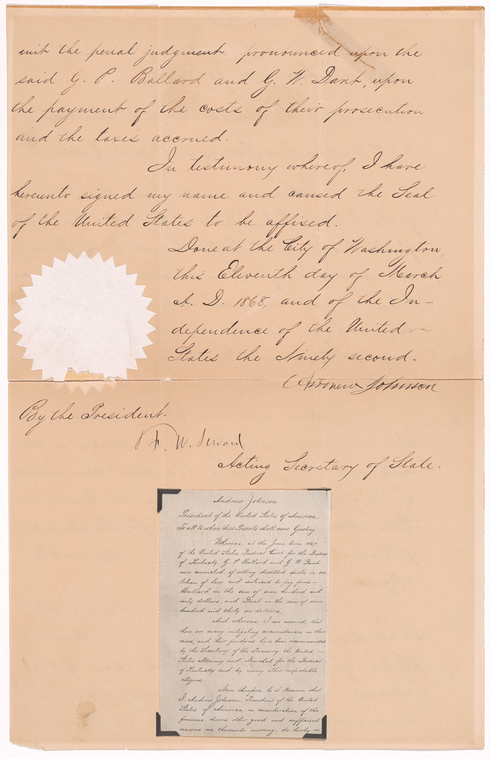 mit the penal judgment, pronounced upon the
said G. P. Ballard and G. W. Dant, upon
the payment of the costs of their prosecution
and the taxes accrued.
In testimony whereof, I have
hereunto signed my name and caused the Seal
of the United States to be affixed.
Done at the City of Washington
this Eleventh day of March
A. D. 1868, and of the In-
dependence of the United
States the Ninety second.
Andrew Johnson
By the President.
F. W. Seward
Acting Secretary of State.
Andrew Johnson
President of the United States of America
To all to whom these Presents shall come, Greeting:
Whereas, at the June term 1867,
of the United States District Court for the District
of Kentucky, G. P. Ballard and G. W. Dant
were convicted of selling distilled spirits in vio-
lation of law and sentenced to pay fines
Ballard in the sum of one hundred and
sixty dollars, and Dant in the sum of one
hundred and thirty six dollars.
And whereas, I am assured, that
there are many mitigating circumstances in their
cases, and their pardons have been recommended
by the Secretary of the Treasury, the United
States Attorney and Marshal for the District
of Kentucky and by many other respectable
citizens
Now therefore be it known that
I, Andrew Johnson President of the United
States of America, in consideration of the
premises, divers other good and sufficient
reasons me thereunto moving, do hereby re